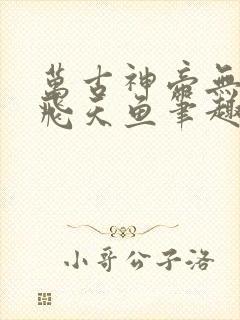 萬古神帝無
飛天魚筆趣
小哥公子洛